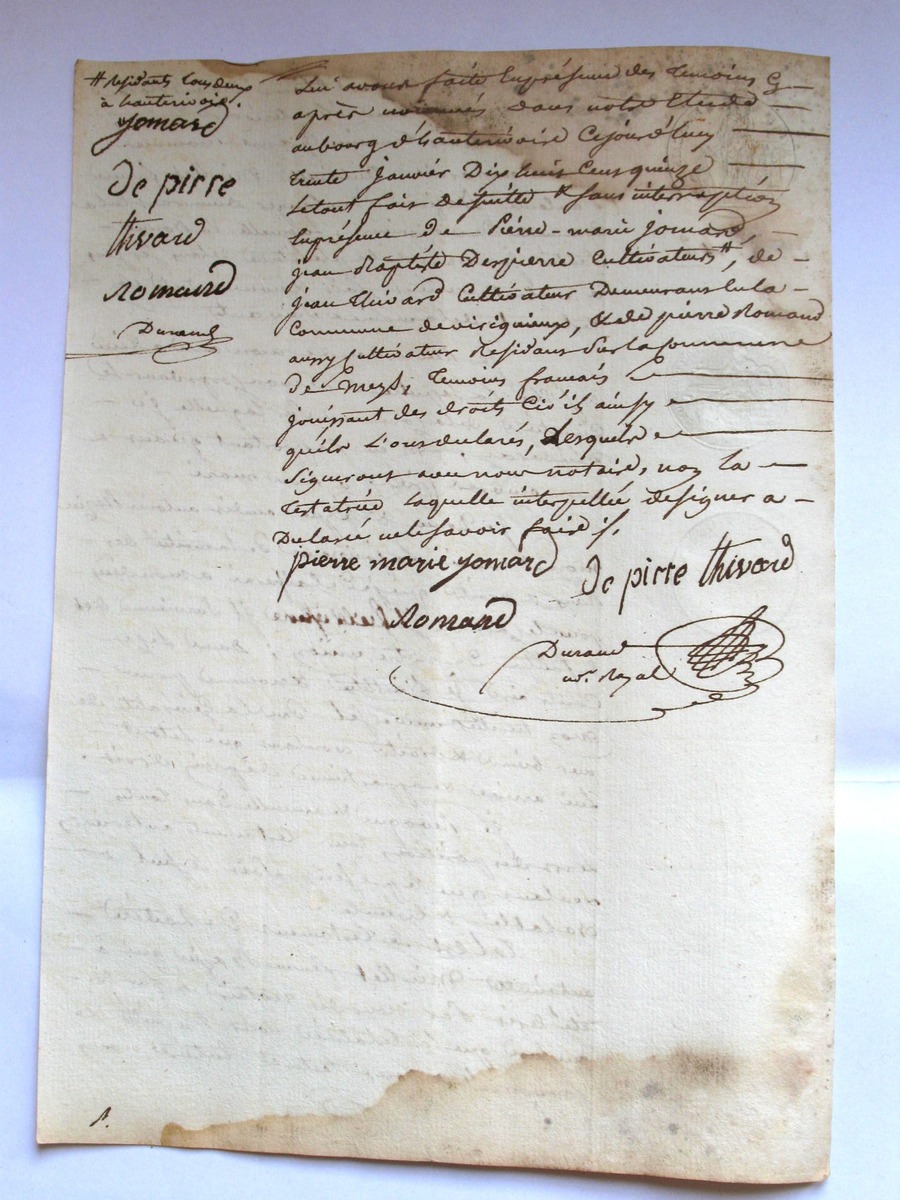 # Residants tous deux
à hauterivoire.
Jomard
De pirre
thivard
Romand
Durand
lui avons faite En présence des témoins Cy
après nommés dans notre Etude
au bourg d'hauterivoire Cejourd'huy
trente janvier Dix huit Cent quinze
le tout fait de suitte & sans interruption
En présence de Pierre-marie jomard,
jean Baptiste Despierre Cultivateurs #, de
jean thivard Cultivateur Demeurant En la
Commune de viriquieux, & de pierre Romand
aussy Cultivateur Résidant sur la Commune
de meys, témoins français
jouissant des droits Civils ainsy
qu'ils l'ont déclarés, Lesquels
signeront avec nous notaire, non la
testatrice laquelle interpellée de signer a
Déclaré ne le savoir faire
pierre marie jomard
De pirre thivard
Romand
Durand
nre Royal